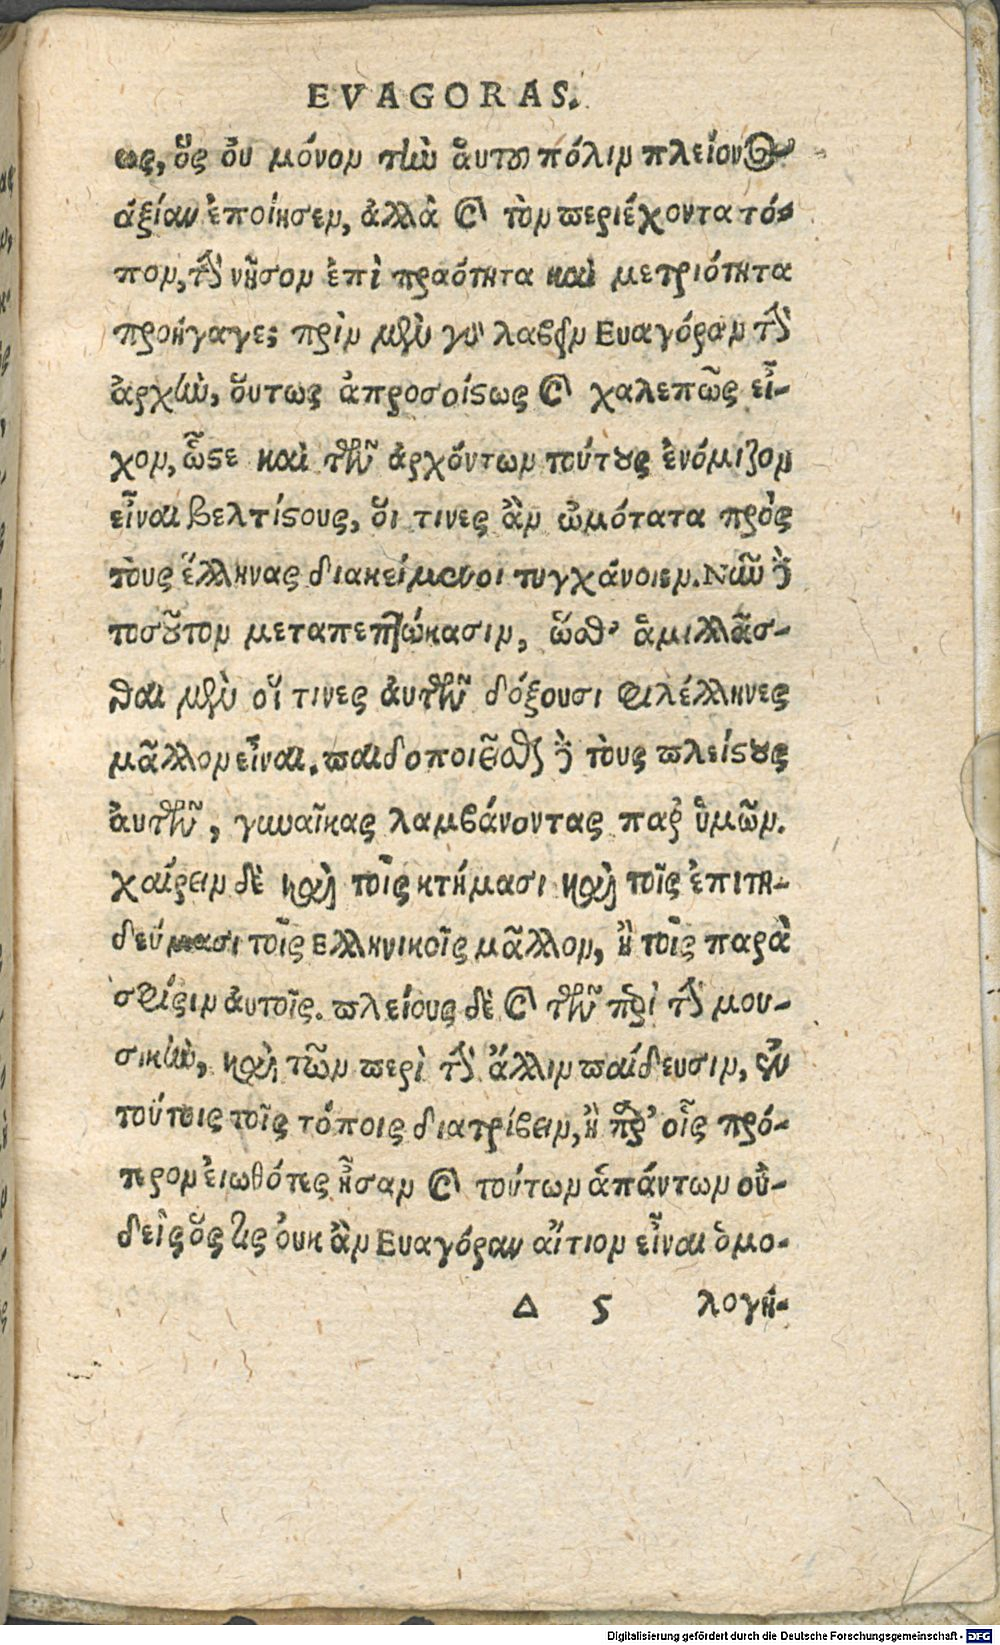 EVAGORAS.
ως, ὅς ὀυ μόνον τὴν ἁυτου πόλιν πλείονος
ἀξίαν ἐποίησεν, ἀλλὰ καὶ τὸν περιέχοντα τό-
πον, τὴν νῆσον ἐπὶ πραότητα καὶ μετριότητα
προήγαγε; πρὶν μὲν γὰρ λαβεῖν Ευαγόραν τὴν
ἀρχὴν, ὅυτως ἀπροσοίςως καὶ χαλεπῶς εἶ-
χον, ὥςε καὶ τῶν ἀρχόντων τούτους ἐνόμιζον
εἶναι βελτίςους, ὅι τινες ἂν ὠμότατα πρὸς
τοὺς ἕλληνας διακείμενοι τυγχάνοιεν. Νῦν δὲ
τοσοῦτον μεταπεπτώκασιν, ὥσθ' ἁμιλλᾶσ-
θαι μὲν οἵ τινες ἀυτῶν δόξουσι φιλέλληνες
μᾶλλον εἶναι. παιδοποιεῖσθαι δὲ τοὺς πλείςους
ἀυτῶν, γυναῖκας λαμβάνοντας παρ' ὑμῶν.
χαίρειν δὲ καὶ τοῖς κτήμασι καὶ τοῖς ἐπιτη-
δεύμασι τοῖς Ελληνικοῖς μᾶλλον, ἢ τοῖς παρὰ
σφίσιν ἀυτοῖς. πλείους δὲ καὶ τῶν περὶ τὴν μου-
σικὴν, καὶ τῶν περὶ τὴν ἄλλην παίδευσιν, ἐν
τούτοις τοῖς τόποις διατρίβειν, ἢ παρ' οἷς πρό-
τερον ἐιωθότες ἦσαν καὶ τούτων ἁπάντων οὐ-
δεὶς ὅς τις ὀυκ ἂν Ευαγόραν αἴτιον εἶναι ὁμο-
Δ 5 λογή-
Digitalisierung gefördert durch die Deutsche Forschungsgemeinschaft - DFG